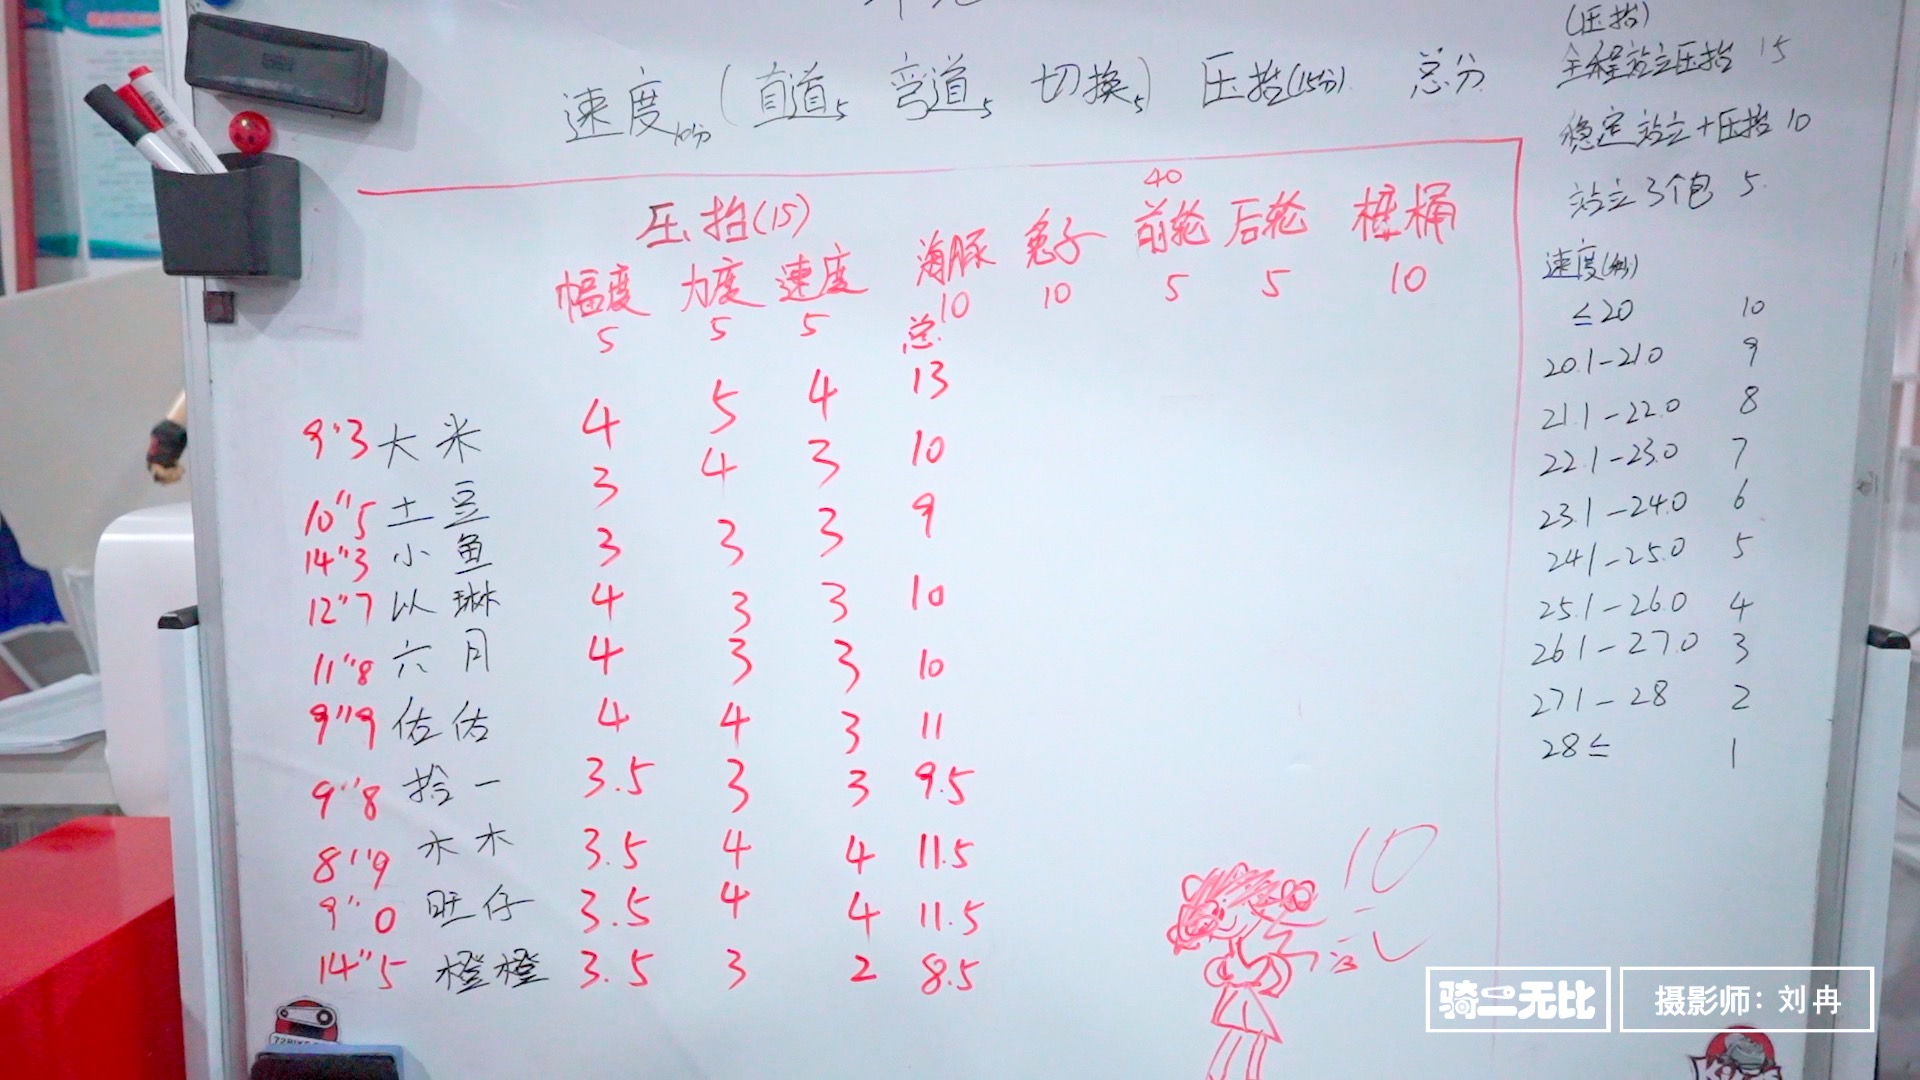 速度10分(直道5 弯道5 切换5) 压抬(15分) 总分
40
压抬(15) 海豚 兔子 前轮 后轮 木桩桶
幅度 力度 速度 10 10 5 5 10
5 5 5 总
9"3 大米 4 5 4 13
10"5 土豆 3 4 3 10
14"3 小鱼 3 3 3 9
12"7 以琳 4 3 3 10
11"8 六月 4 3 3 10
9"9 佑佑 4 4 3 11
9"8 拾一 3.5 3 3 9.5
8"9 木木 3.5 4 4 11.5
9"0 旺仔 3.5 4 4 11.5
14"5 橙橙 3.5 3 2 8.5
10
(压抬)
全程站立压抬 15
稳定站立+压抬 10
站立3个包 5
速度(秒)
≤20 10
20.1-21.0 9
21.1-22.0 8
22.1-23.0 7
23.1-24.0 6
24.1-25.0 5
25.1-26.0 4
26.1-27.0 3
27.1-28 2
28≤ 1
骑二无比
摄影师：刘冉